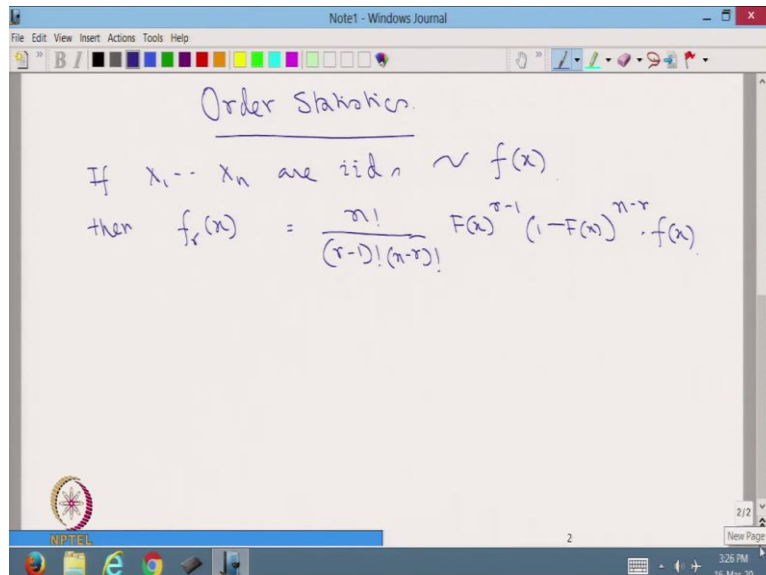 Note1 - Windows Journal
File Edit View Insert Actions Tools Help
B I
Order Statistics.
If X₁ -- Xₙ are iid ~ f(x)
then fᵣ(x) = n! / (r-1)! (n-r)! F(x)^{r-1} (1-F(x))^{n-r} . f(x)
NPTEL
2/2
2
New Page
3:26 PM